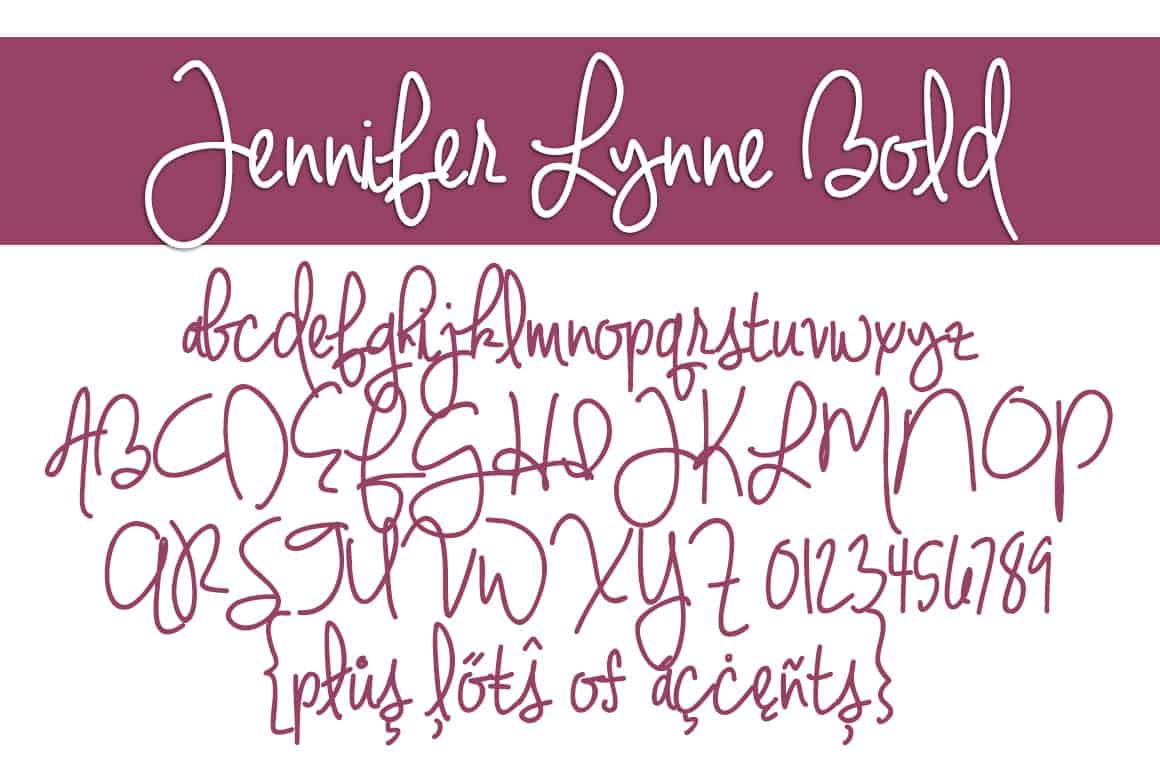 Jennifer Lynne Bold
abcdefghijklmnopqrstuvwxyz
ABCDEFGHIJKLMNOP
QRSTUVWXYZ 0123456789
{płůş ļőŧŝ of áçċęñtș}